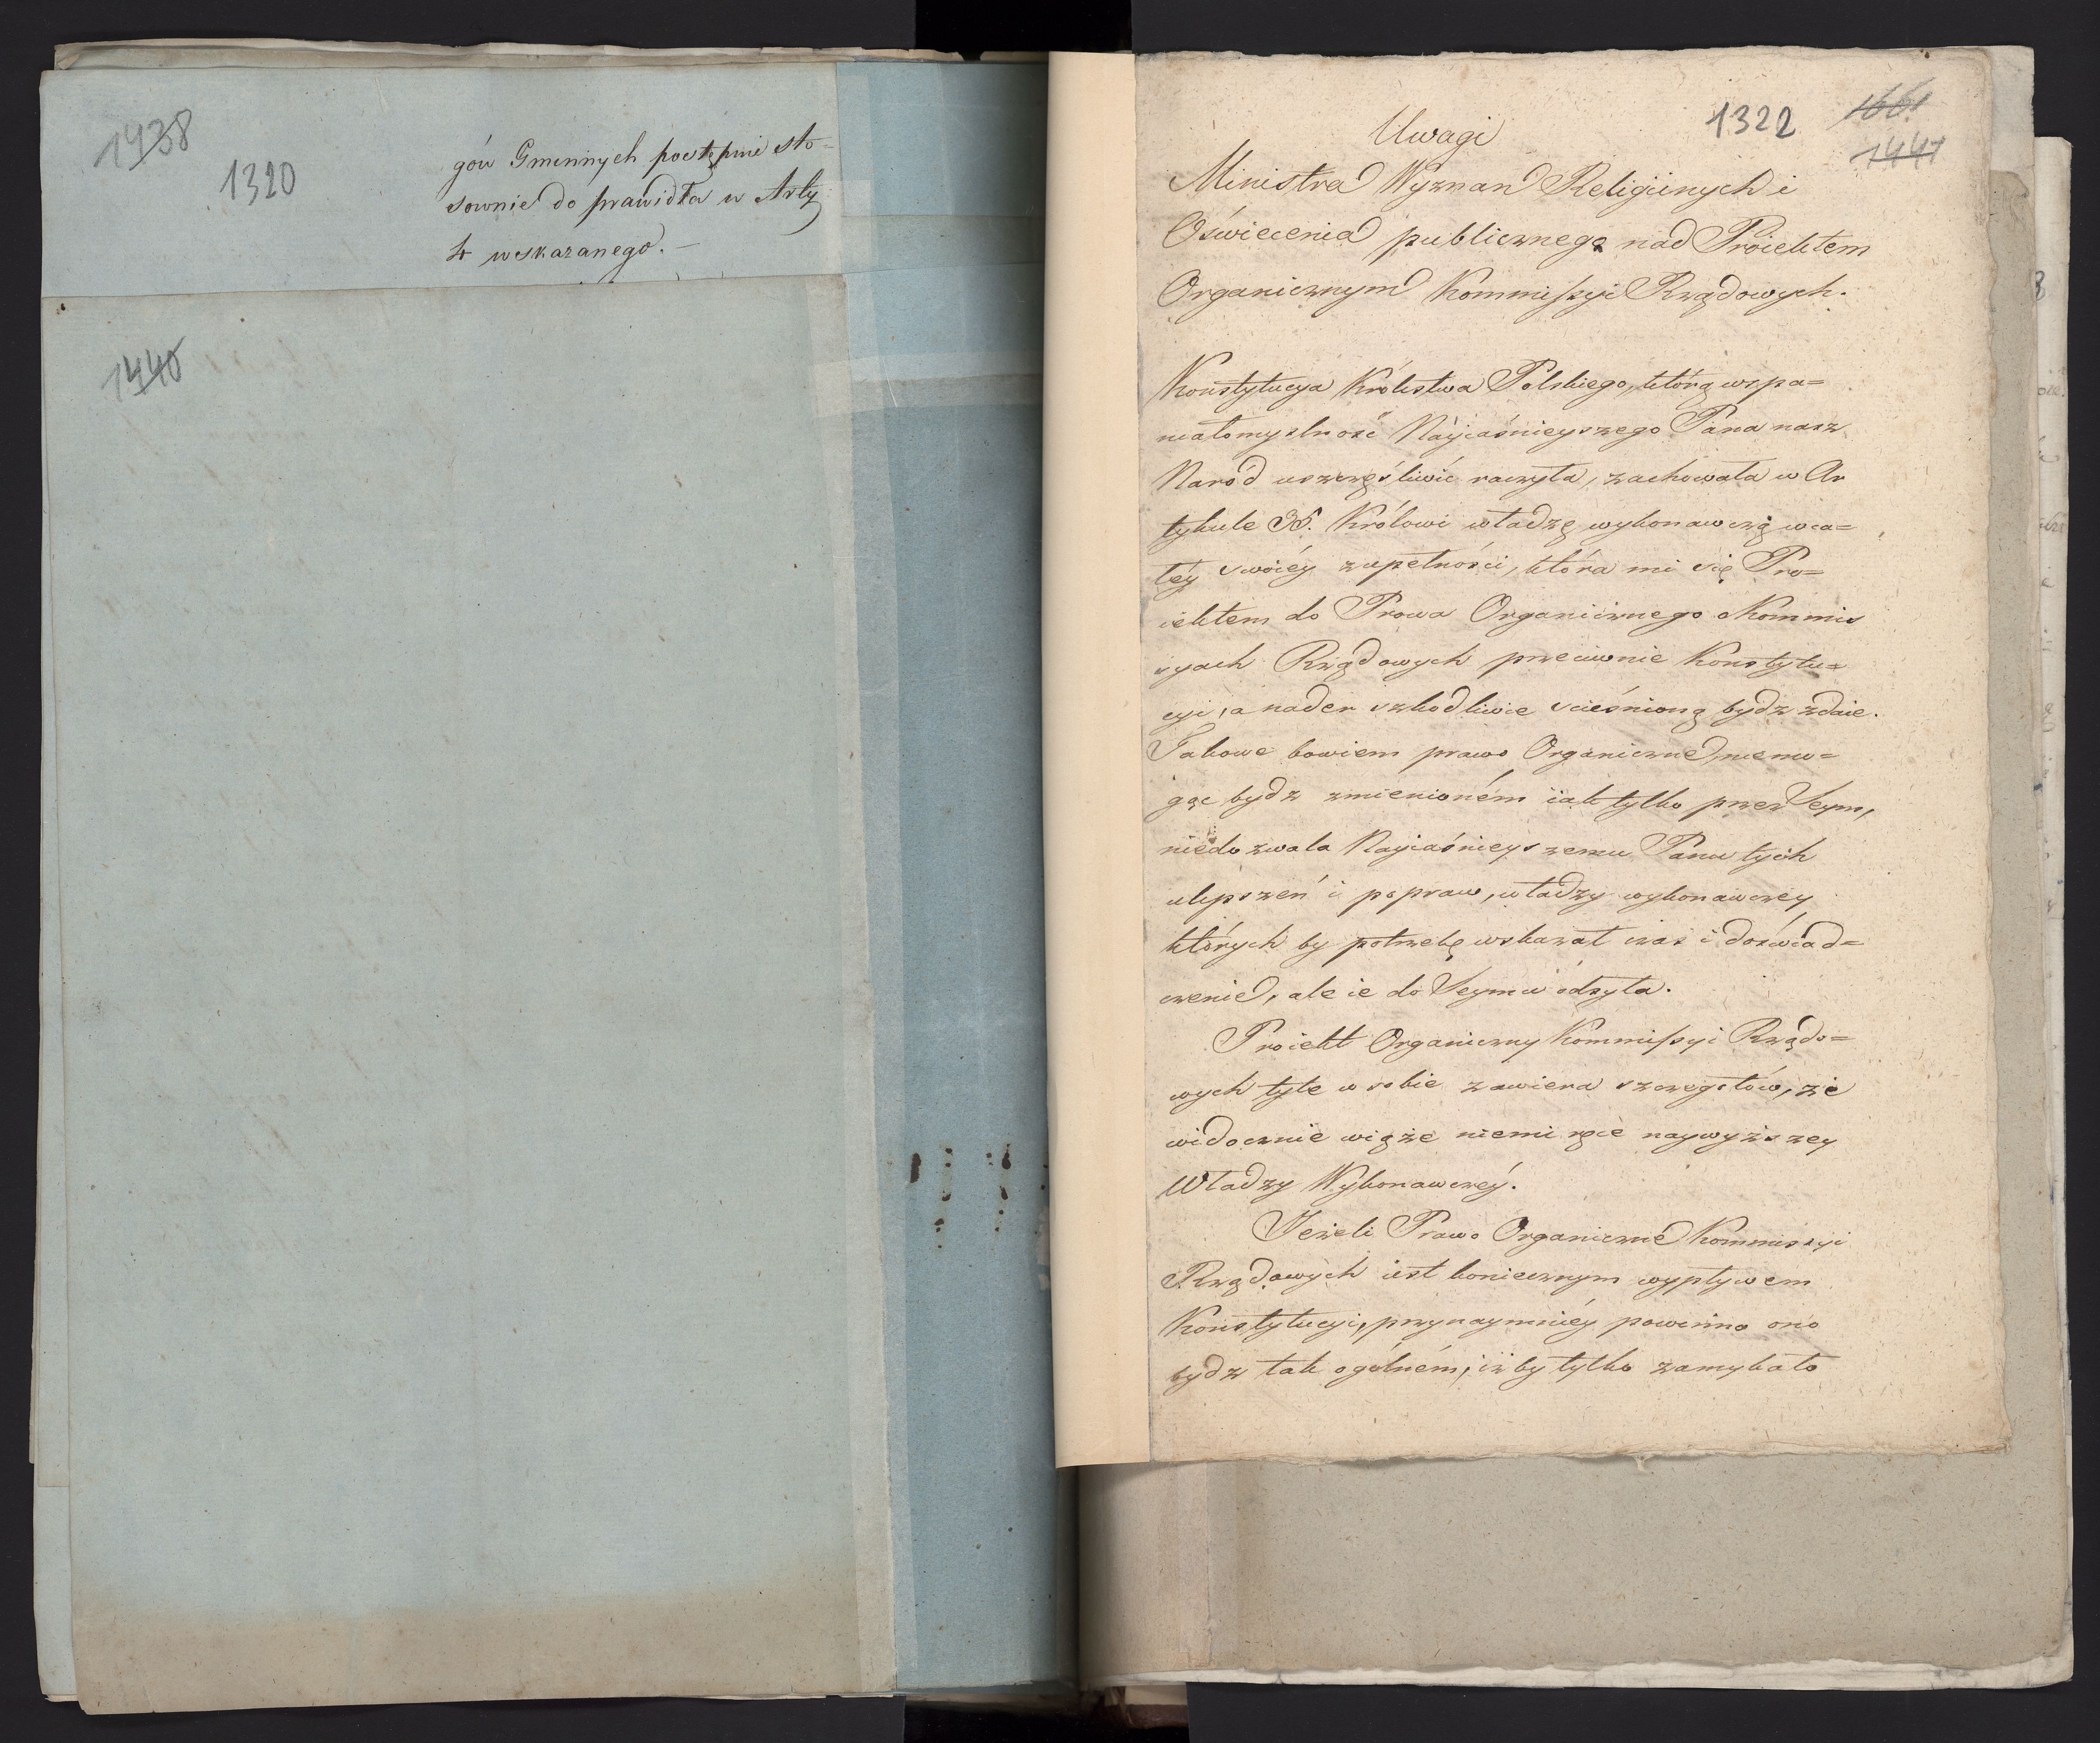 1438
1320
gów Gminnych postępnie sto-
sownie do prawidła w Arty
4 wskazanego.-
1440
1322
1661
1441
Uwagi
Ministra Wyznan Religiinych i
Oświecenia publicznego nad Proiektem
Organicznym Kommissyi Rządowych.
Konstytucya Królestwa Polskiego, którą wspa=
niałomyslność Nayiaśnieyszego Pana nasz
Naród uszczęśliwić raczyła, zachowała w Ar
tykule 35. Królowi władzę wykonawczą wca=
łéy swoiéy zupełności, która mi się Pro=
iektem do Prawa Organicznego o Kommis
syach Rządowych przeciwnie Konstytu=
cyi, a nader szkodliwie scieśnioną bydz zdaie.
Takowe bowiem prawo Organiczne, niemo=
gąc bydz zmienioném iak tylko przez Seym,
niedozwala Nayiaśnieyszemu Panu tych
ulepszeń i popraw, władzy wykonawczey
których by potrzebę wskazał czas i doświad=
czenie, ale ie do Seymu odsyła.
Proiekt Organiczny Kommissyi Rządo=
wych tyle w sobie zawiera szczegółów, że
widocznie wiąże niemi ręce naywyższey
Władzy Wykonawczéy.
Jeżeli Prawo Organiczne Kommissyi
Rządowych iest koniecznym wypływem
Konstytucyi, przynaymniéy powinno ono
bydz tak ogólném, iżby tylko zamykało